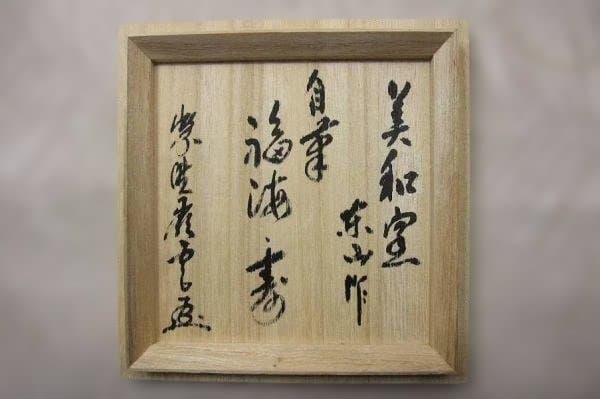 美和窯
東山作
自筆
福海寿
紫野